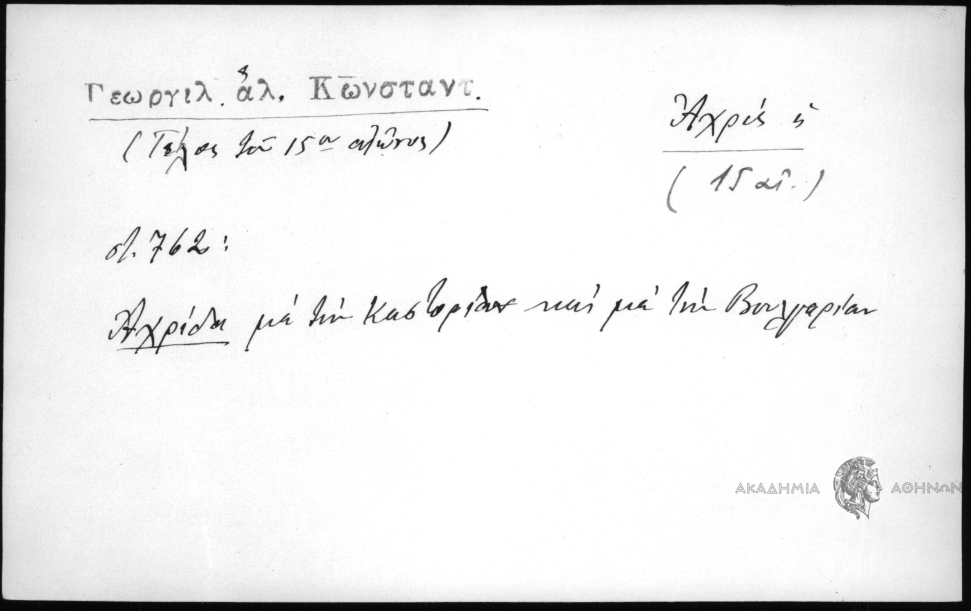 Γεωργιλ. ἅλ. Κωνσταντ.
(Τέλος τοῦ 15ου αἰῶνος)
Ἀχρίς ἡ
(15 αἰ.)
στ. 762:
Ἀχρίδα μὲ τὴν Καστορίαν καὶ μὲ τὴν Βουλγαρίαν
ΑΚΑΔΗΜΙΑ ΑΘΗΝΩΝ